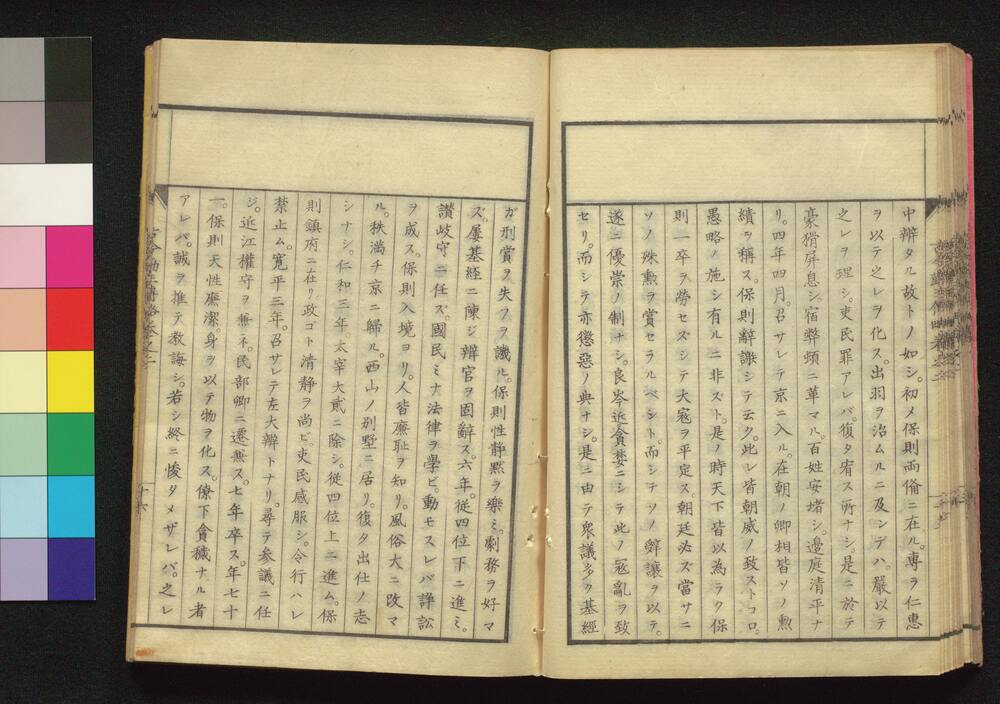 中辨タル故トノ如シ。初メ保則両備ニ在ル。専ラ仁惠
ヲ以テ之レヲ化ス。出羽ヲ治ムルニ及ンデハ。嚴以テ
之レヲ理シ。吏民罪アレバ。復タ宥ス所ナシ。是ニ於テ
豪猾屏息シ。宿弊頓ニ革マル。百姓安堵シ。邊庭清平ナ
リ。四年四月。召サレテ京ニ入ル。在朝ノ卿相皆ソノ勲
績ヲ稱ス。保則辭謝シテ云ク。此レ皆朝威ノ致ストコロ。
愚略ノ施シ有ルニ非ズト。是ノ時天下皆以為ラク保
則一卒ヲ勞セズシテ大寇ヲ平定ス。朝廷必ズ當サニ
ソノ殊勲ヲ賞セラルベシト。而シテソノ辭讓ヲ以テ。
遂ニ優崇ノ制ナシ。良岑近貪婪ニシテ此ノ寇亂ヲ致
セリ。而シテ亦懲惡ノ典ナシ。是ニ由テ衆議多ク基經
ガ刑賞ヲ失フヲ譏ル。保則性静黙ヲ樂ミ。劇務ヲ好マ
ズ。屢基經ニ陳ジ辨官ヲ固辭ス。六年。從四位下ニ進ミ。
讃岐守ニ任ズ。國民ミナ法律ヲ學ビ。動モスレバ諍訟
ヲ成ス。保則入境ヨリ。人皆廉耻ヲ知リ。風俗大ニ改マ
ル。秩満チ京ニ歸ル。西山ノ別墅ニ居リ。復タ出仕ノ志
シナシ。仁和三年太宰大貳ニ除シ。從四位上ニ進ム。保
則鎮府ニ在リ政ゴト清静ヲ尚ビ。吏民感服シ。令行ハレ
禁止ム。寛平三年。召サレテ左大辨トナリ。尋テ参議ニ任
ジ。近江權守ヲ兼ネ。民部卿ニ遷兼ス。七年卒ス。年七十
一。保則天性廉潔。身ヲ以テ物ヲ化ス。僚下貪穢ナル者
アレバ。誠ヲ推テ教誨シ。若シ終ニ悛タメザレバ。之レ